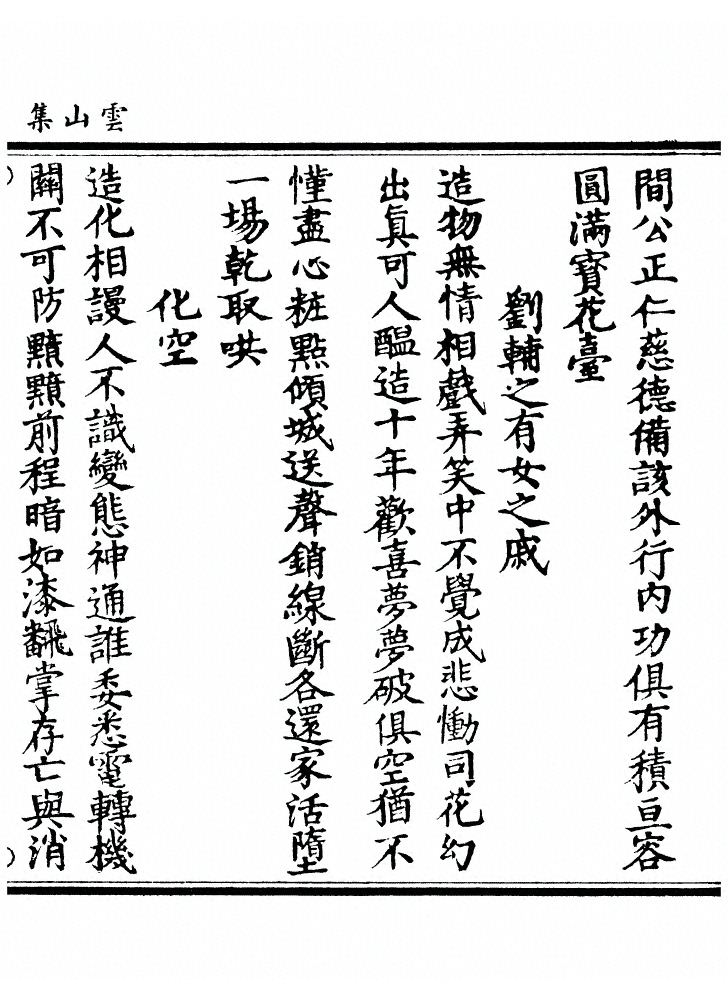 雲山集
間公正仁慈德備該外行內功俱有積亘容
圓滿寶花臺
劉輔之有女之戚
造物無情相戲弄笑中不覺成悲慟司花幻
出眞可人醞造十年歡喜夢夢破俱空猶不
懂盡心粧點傾城送聲銷線斷各還家活墮
一場乾取哄
化空
造化相謾人不識變態神通誰委悉電轉機
關不可防顆顆前程暗如漆飜掌存亡與消